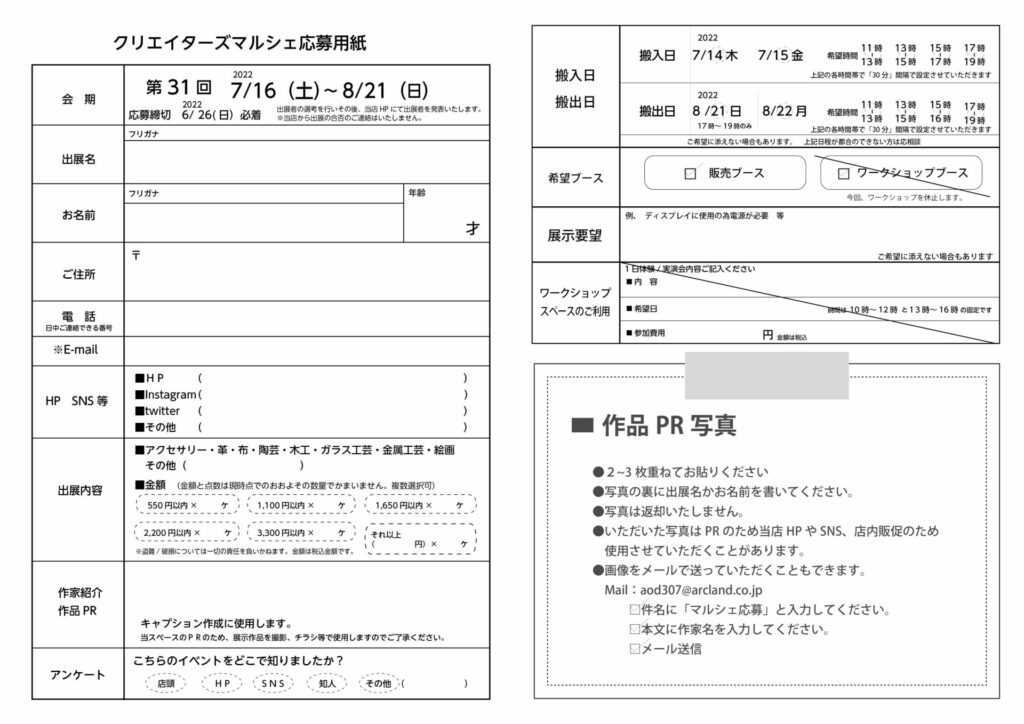 クリエイターズマルシェ応募用紙
会　期
第 31 回
2022
7/16（土）～ 8/21（日）
応募締切
2022
6/ 26( 日 ) 必着
出展者の選考を行いその後、当店 HP にて出展者を発表いたします。
※当店から出展の合否のご連絡はいたしません。
出展名
フリガナ
お名前
フリガナ
年齢
才
ご住所
〒
電　話
日中ご連絡できる番号
※E-mail
HP　SNS 等
■H P　(　)
■Instagram (　)
■twitter　(　)
■その他　(　)
出展内容
■アクセサリー・革・布・陶芸・木工・ガラス工芸・金属工芸・絵画
その他（　）
■金額　（金額と点数は現時点でのおおよその数量でかまいません。複数選択可）
550 円以内 ×　ヶ
1,100 円以内 ×　ヶ
1,650 円以内 ×　ヶ
2,200 円以内 ×　ヶ
3,300 円以内 ×　ヶ
それ以上
（　円）×　ヶ
※盗難 / 破損については一切の責任を負いかねます。金額は税込金額です。
作家紹介
作品 PR
キャプション作成に使用します。
当スペースの P R のため、展示作品を撮影、チラシ等で使用しますのでご了承ください。
アンケート
こちらのイベントをどこで知りましたか？
店頭　H P　S N S　知人　その他 (　)
搬入日
搬出日
搬入日
2022
7/14 木　7/15 金
希望時間
11 時　13 時　15 時　17 時
13 時　15 時　17 時　19 時
上記の各時間帯で「30 分」間隔で設定させていただきます
搬出日
2022
8 /21 日　8/22 月
17 時～ 19 時のみ
希望時間
11 時　13 時　15 時　17 時
13 時　15 時　16 時　19 時
上記の各時間帯で「30 分」間隔で設定させていただきます
ご希望に添えない場合もあります。　上記日程が都合のできない方は応相談
希望ブース
販売ブース
ワークショップブース
今回、ワークショップを休止します。
展示要望
例、　ディスプレイに使用の為電源が必要　等
ご希望に添えない場合もあります
ワークショップ
スペースのご利用
1 日体験 / 実演会内容ご記入ください
■ 内　容
■ 希望日
時間は 10 時～ 12 時 と 1 3 時～ 16 時 の固定です
■ 参加費用
円　金額は税込
■ 作品 PR 写真
●２~3 枚重ねてお貼りください
●写真の裏に出展名かお名前を書いてください。
●写真は返却いたしません。
●いただいた写真は PR のため当店 HP や SNS、店内販促のため
使用させていただくことがあります。
●画像をメールで送っていただくこともできます。
Mail：aod307@arcland.co.jp
☑件名に「マルシェ応募」と入力してください。
☑本文に作家名を入力してください。
☑メール送信